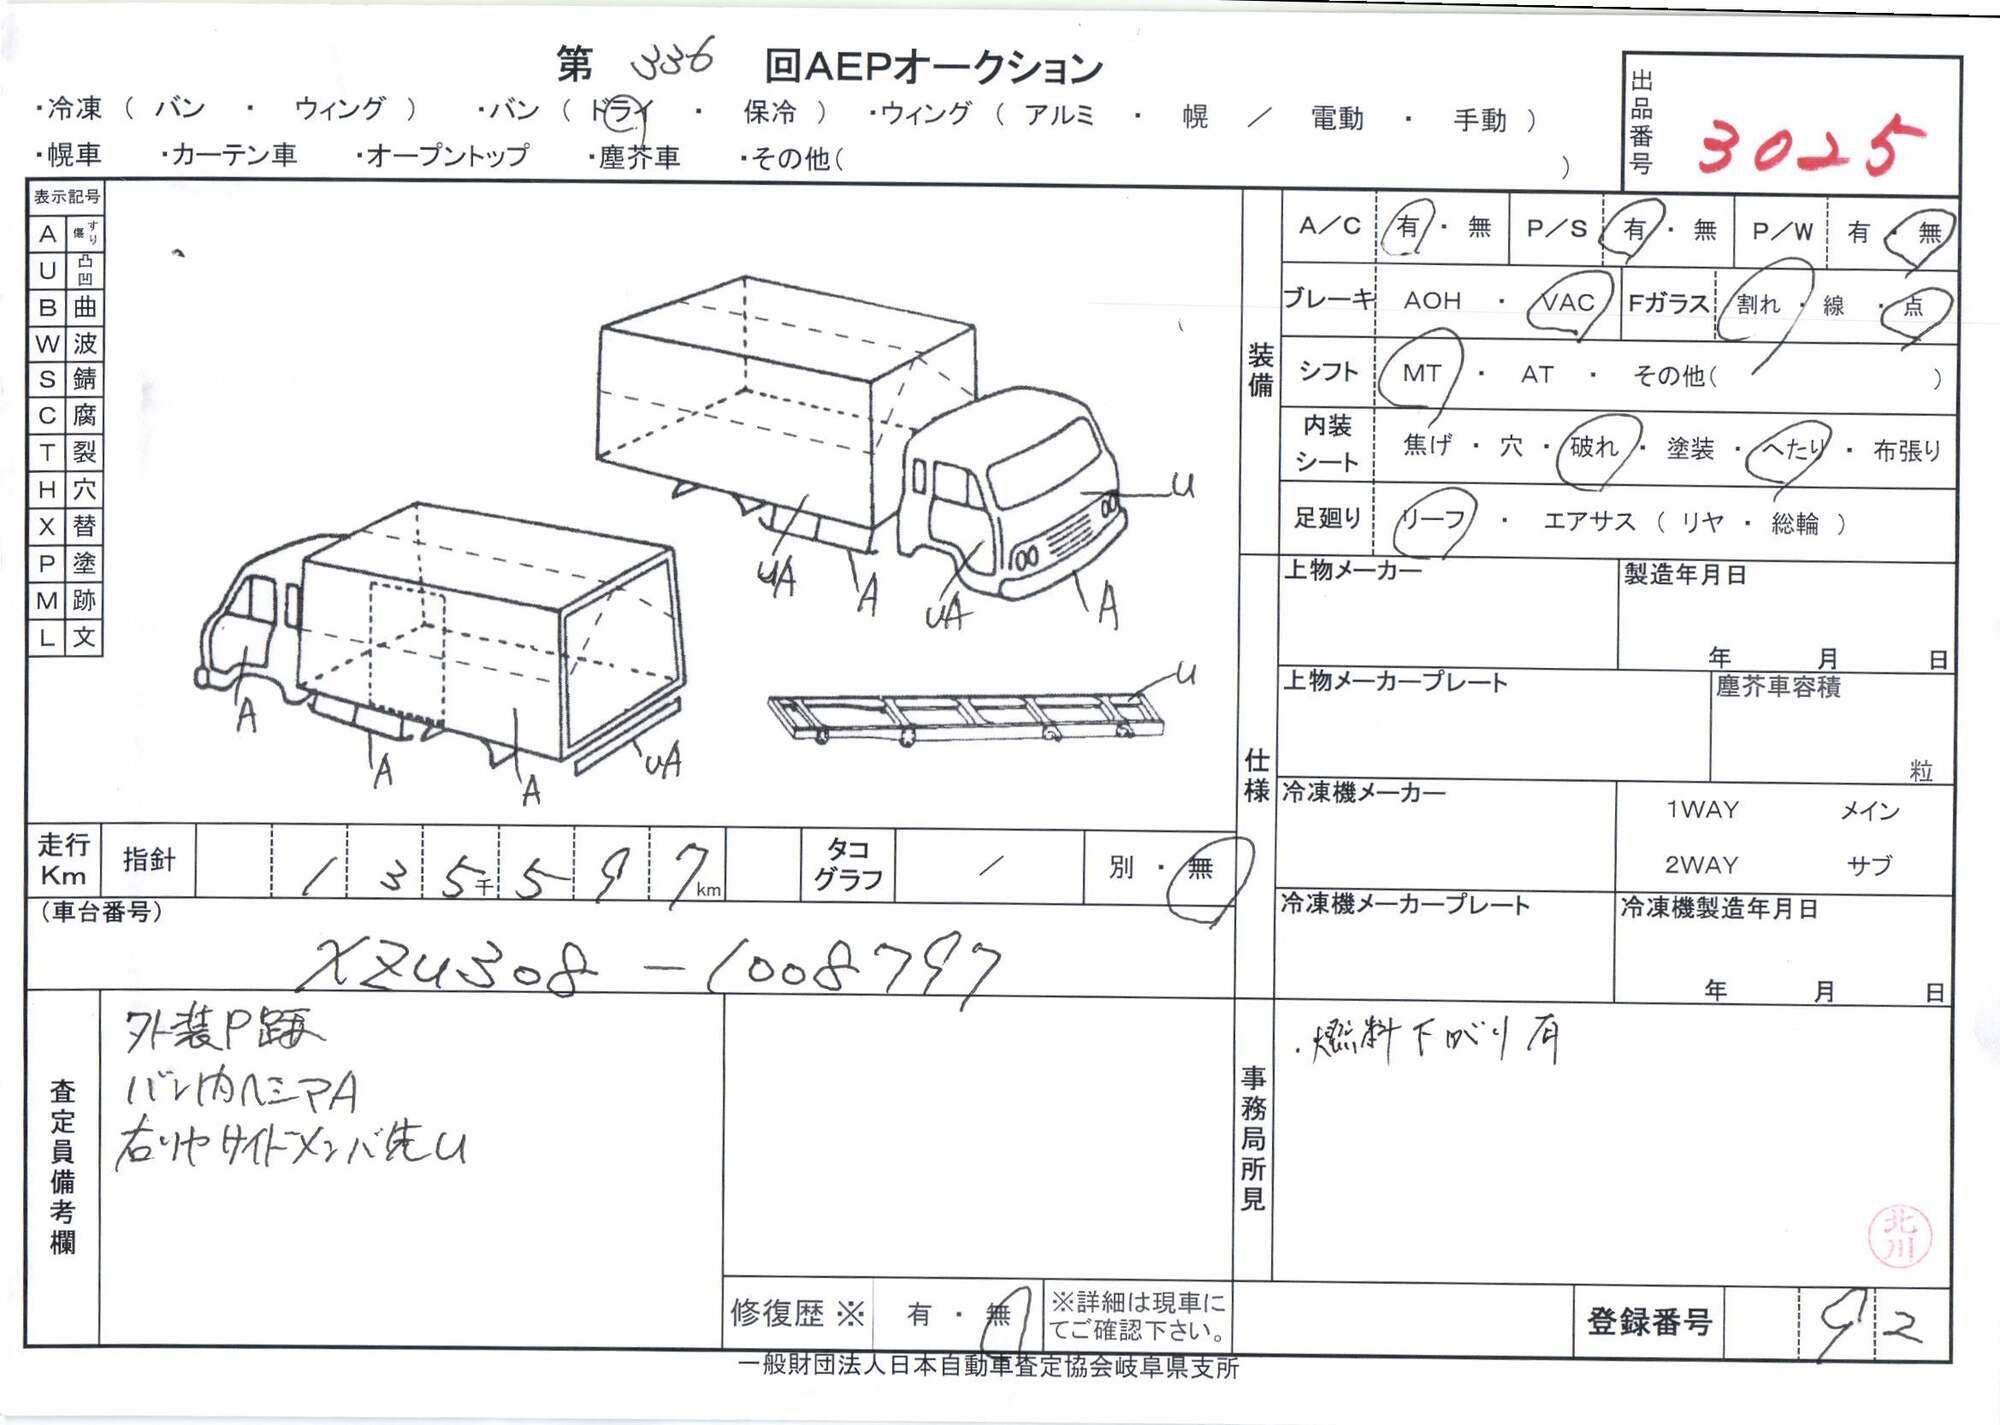 第 336 回AEPオークション
・冷凍 ( バン ・ ウィング ) ・バン ( ドライ ・ 保冷 ) ・ウィング ( アルミ ・ 幌 ／ 電動 ・ 手動 )
・幌車 ・カーテン車 ・オープントップ ・塵芥車 ・その他( )
出品番号 3025
表示記号
A すり傷
U 凸凹
B 曲
W 波
S 錆
C 腐
T 裂
H 穴
X 替
P 塗
M 跡
L 文
U
UA
A
UA
A
U
A
A
A
UA
装備
A／C 有 ・ 無 P／S 有 ・ 無 P／W 有 ・ 無
ブレーキ AOH ・ VAC Fガラス 割れ ・ 線 ・ 点
シフト MT ・ AT ・ その他( )
内装シート 焦げ ・ 穴 ・ 破れ ・ 塗装 ・ へたり ・ 布張り
足廻り リーフ ・ エアサス ( リヤ ・ 総輪 )
仕様
上物メーカー 製造年月日
年 月 日
上物メーカープレート 塵芥車容積
粒
冷凍機メーカー 1WAY メイン
2WAY サブ
冷凍機メーカープレート 冷凍機製造年月日
年 月 日
走行Km 指針 1 3 5千 5 9 7 km タコグラフ / 別 ・ 無
(車台番号)
XZU308 - 1008797
査定員備考欄
外装P跡
バン内ヘコミアA
右リヤサイドメンバ先U
事務局所見
・燃料下がり有
北川
修復歴 ※ 有 ・ 無 ※詳細は現車にてご確認下さい。
登録番号 92
一般財団法人日本自動車査定協会岐阜県支所